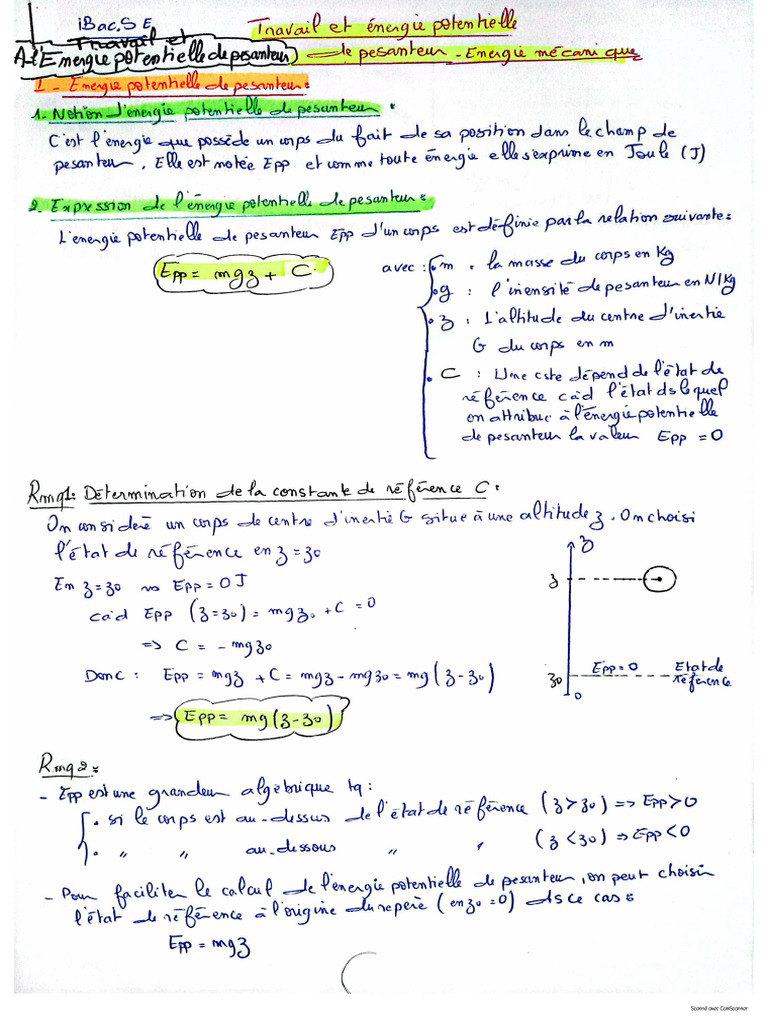 1Bac.S E
Travail et énergie potentielle
Travail et
A-l'Energie potentielle de pesanteur) de pesanteur - Energie mécanique
1 - Energie potentielle de pesanteur :
1- Notion d'énergie potentielle de pesanteur :
C'est l'énergie que possède un corps du fait de sa position dans le champ de
pesanteur. Elle est notée Epp et comme toute énergie elle s'exprime en Joule (J)
2- Expression de l'énergie potentielle de pesanteur :
L'energie potentielle de pesanteur Epp d'un corps est définie par la relation suivante :
Epp = mgz + C.
avec : m : la masse du corps en Kg
g : l'inensité de pesanteur en N/Kg
z : L'altitude du centre d'inertie
G du corps en m
C : Une cste dépend de l'état de
référence càd l'état ds lequel
on attribue à l'énergie potentielle
de pesanteur la valeur Epp = 0
Rmq1: Détermination de la constante de référence C :
On considère un corps de centre d'inertie G situé à une altitude z. On choisi
l'état de référence en z = z0
En z = z0 Epp = 0 J
càd Epp (z = z0) = mgz0 + C = 0
=> C = - mgz0
Donc : Epp = mgz + C = mgz - mgz0 = mg(z - z0)
=> Epp = mg(z - z0)
z
z
Epp = 0 Etat de
référence
z0
0
Rmq2 :
- Epp est une grandeur algébrique tq :
. si le corps est au-dessus de l'état de référence (z > z0) => Epp > 0
. " " au-dessous " " (z < z0) => Epp < 0
- Pour faciliter le calcul de l'énergie potentielle de pesanteur, on peut choisir
l'état de référence à l'origine du repère (en z0 = 0) ds ce cas :
Epp = mgz
Scanné avec CamScanner